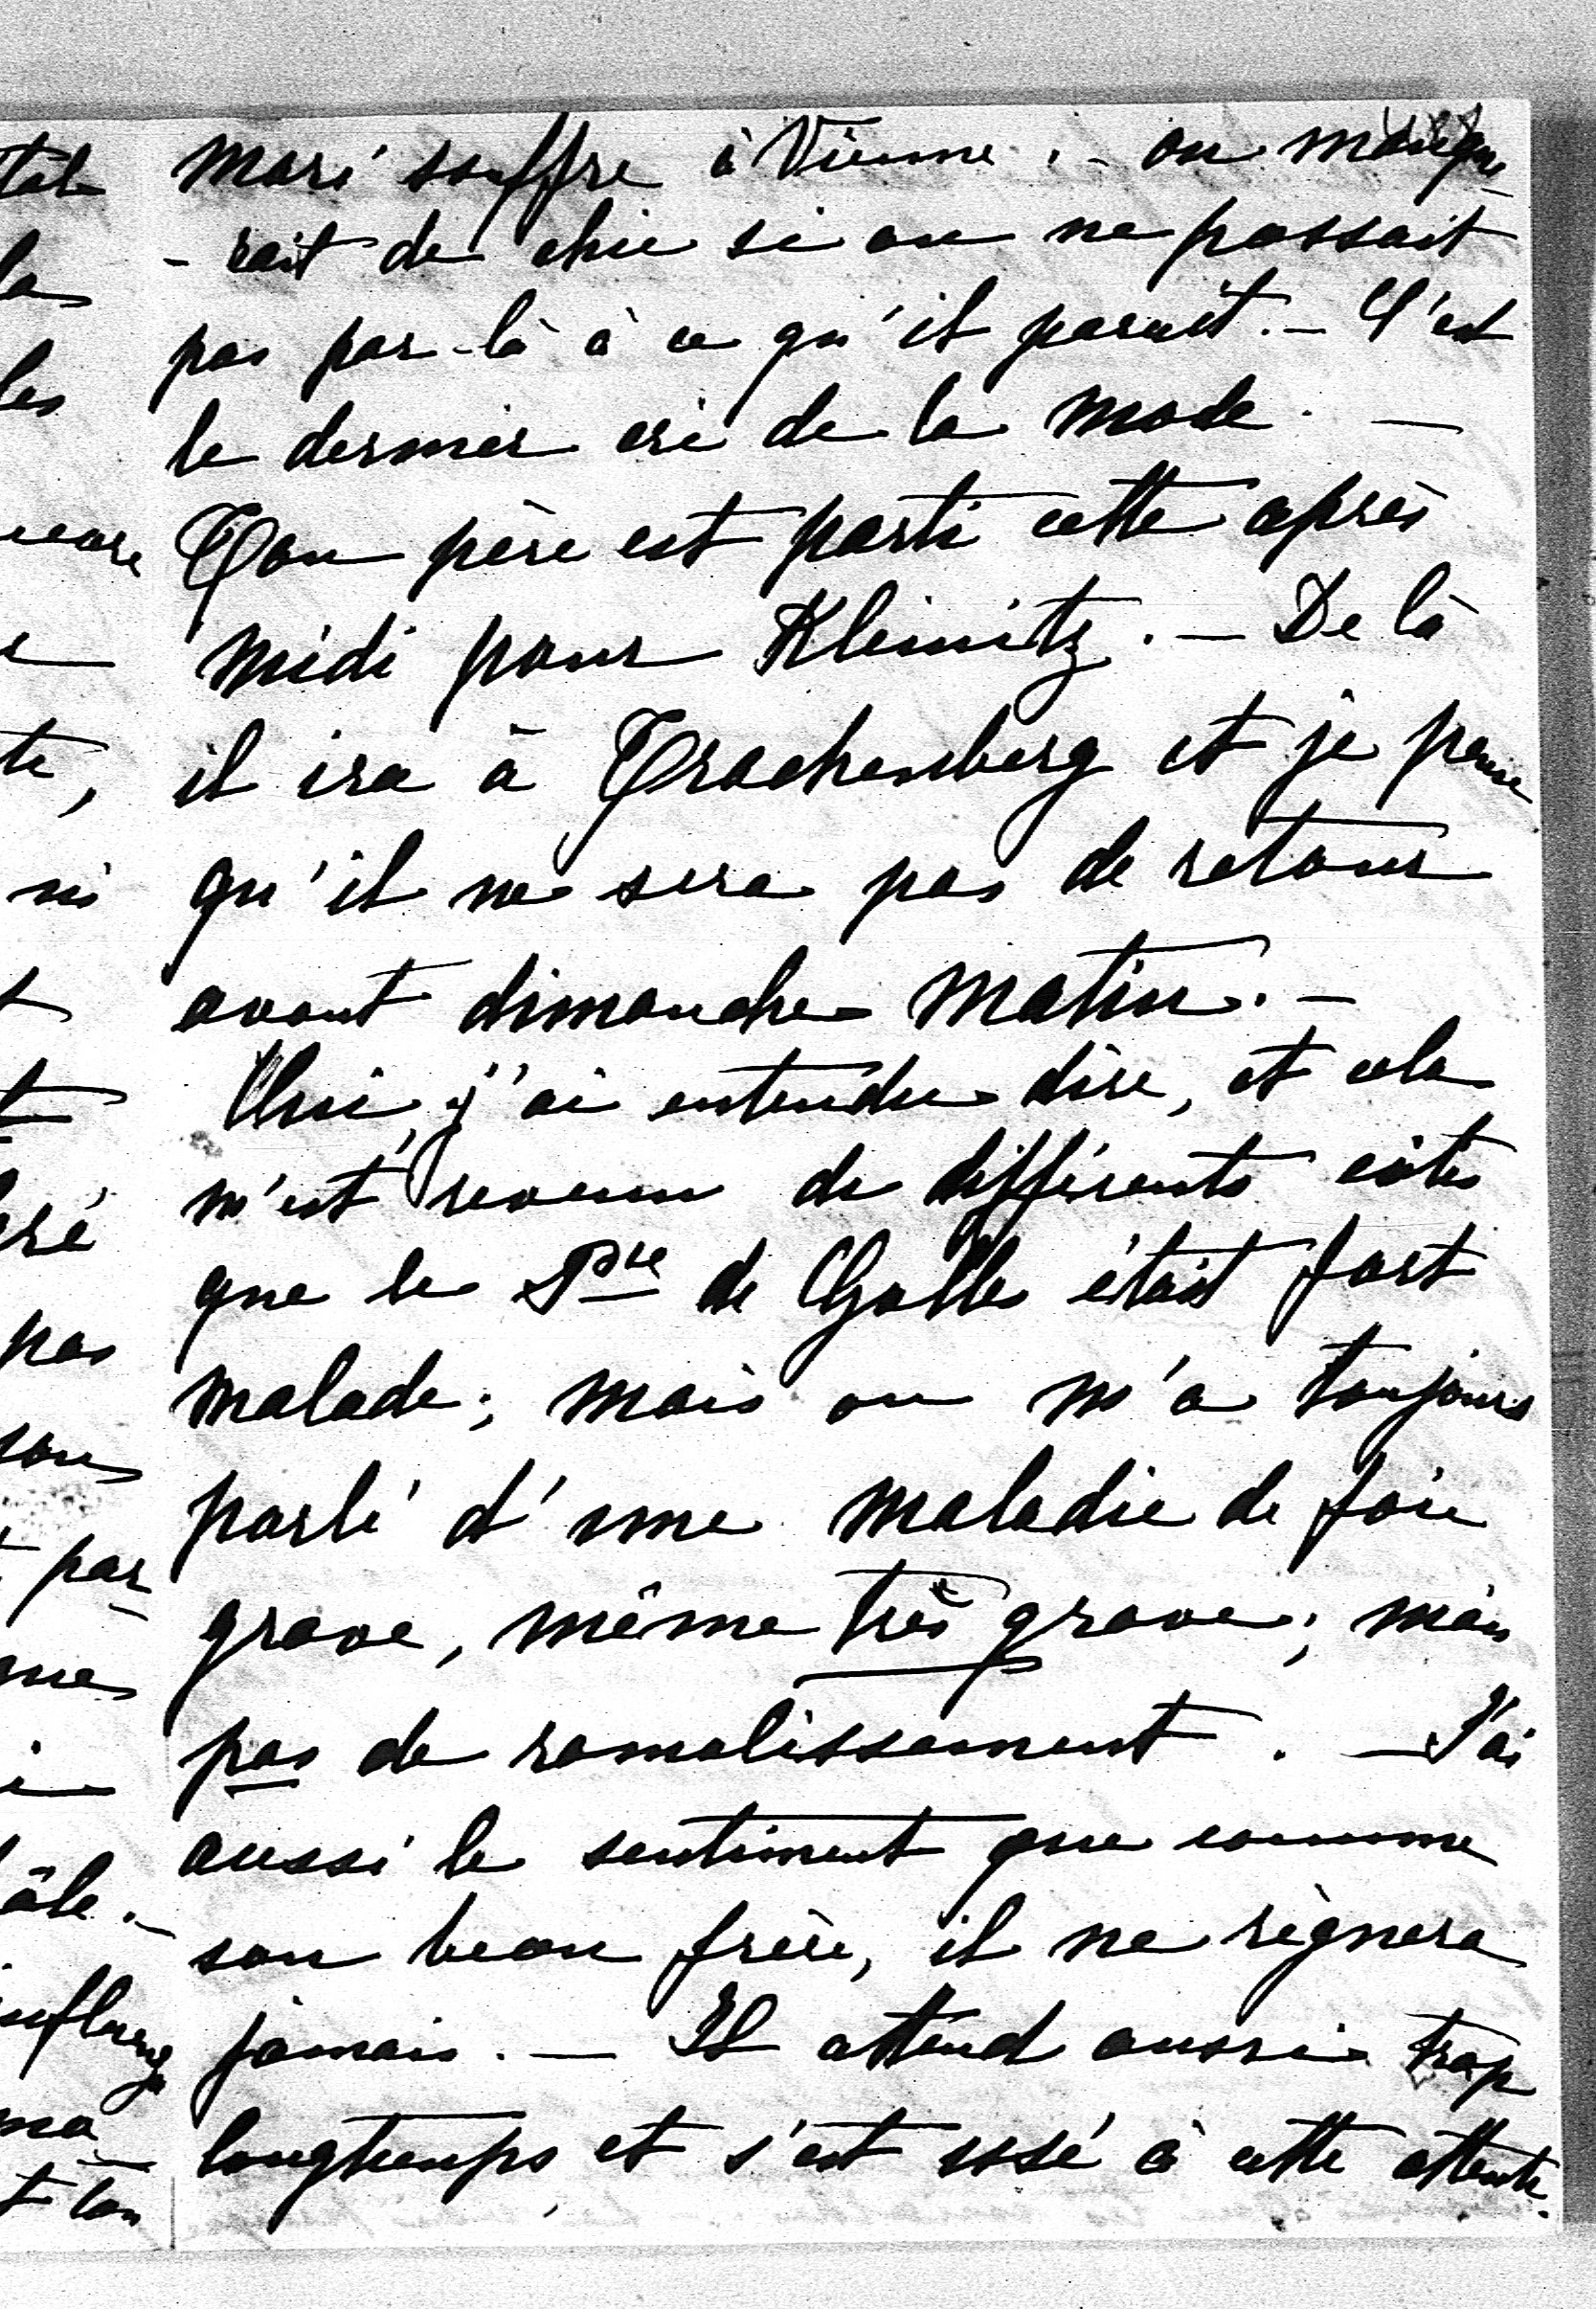 mari souffre à Vienne. - on manque
- rait de chic si on ne passait
pas par-là à ce qu'il parait. - C'est
le dernier cri de la mode. -
Ton père est parti cette après
midi pour Kleinitz. - De là
il ira à Trachenberg et je pense
qu'il ne sera pas de retour
avant dimanche matin. -
Oui, j'ai entendu dire, et cela
m'est revenu de différents côtés
que le Pce de Galles était fort
malade; mais on m'a toujours
parlé d'une maladie de foie
grave, même très grave; mais
pas de ramolissement. - J'ai
aussi le sentiment que comme
son beau frère, il ne règnera
jamais. - Il attend aussi trop
longtemps, et s'est usé à cette attente.